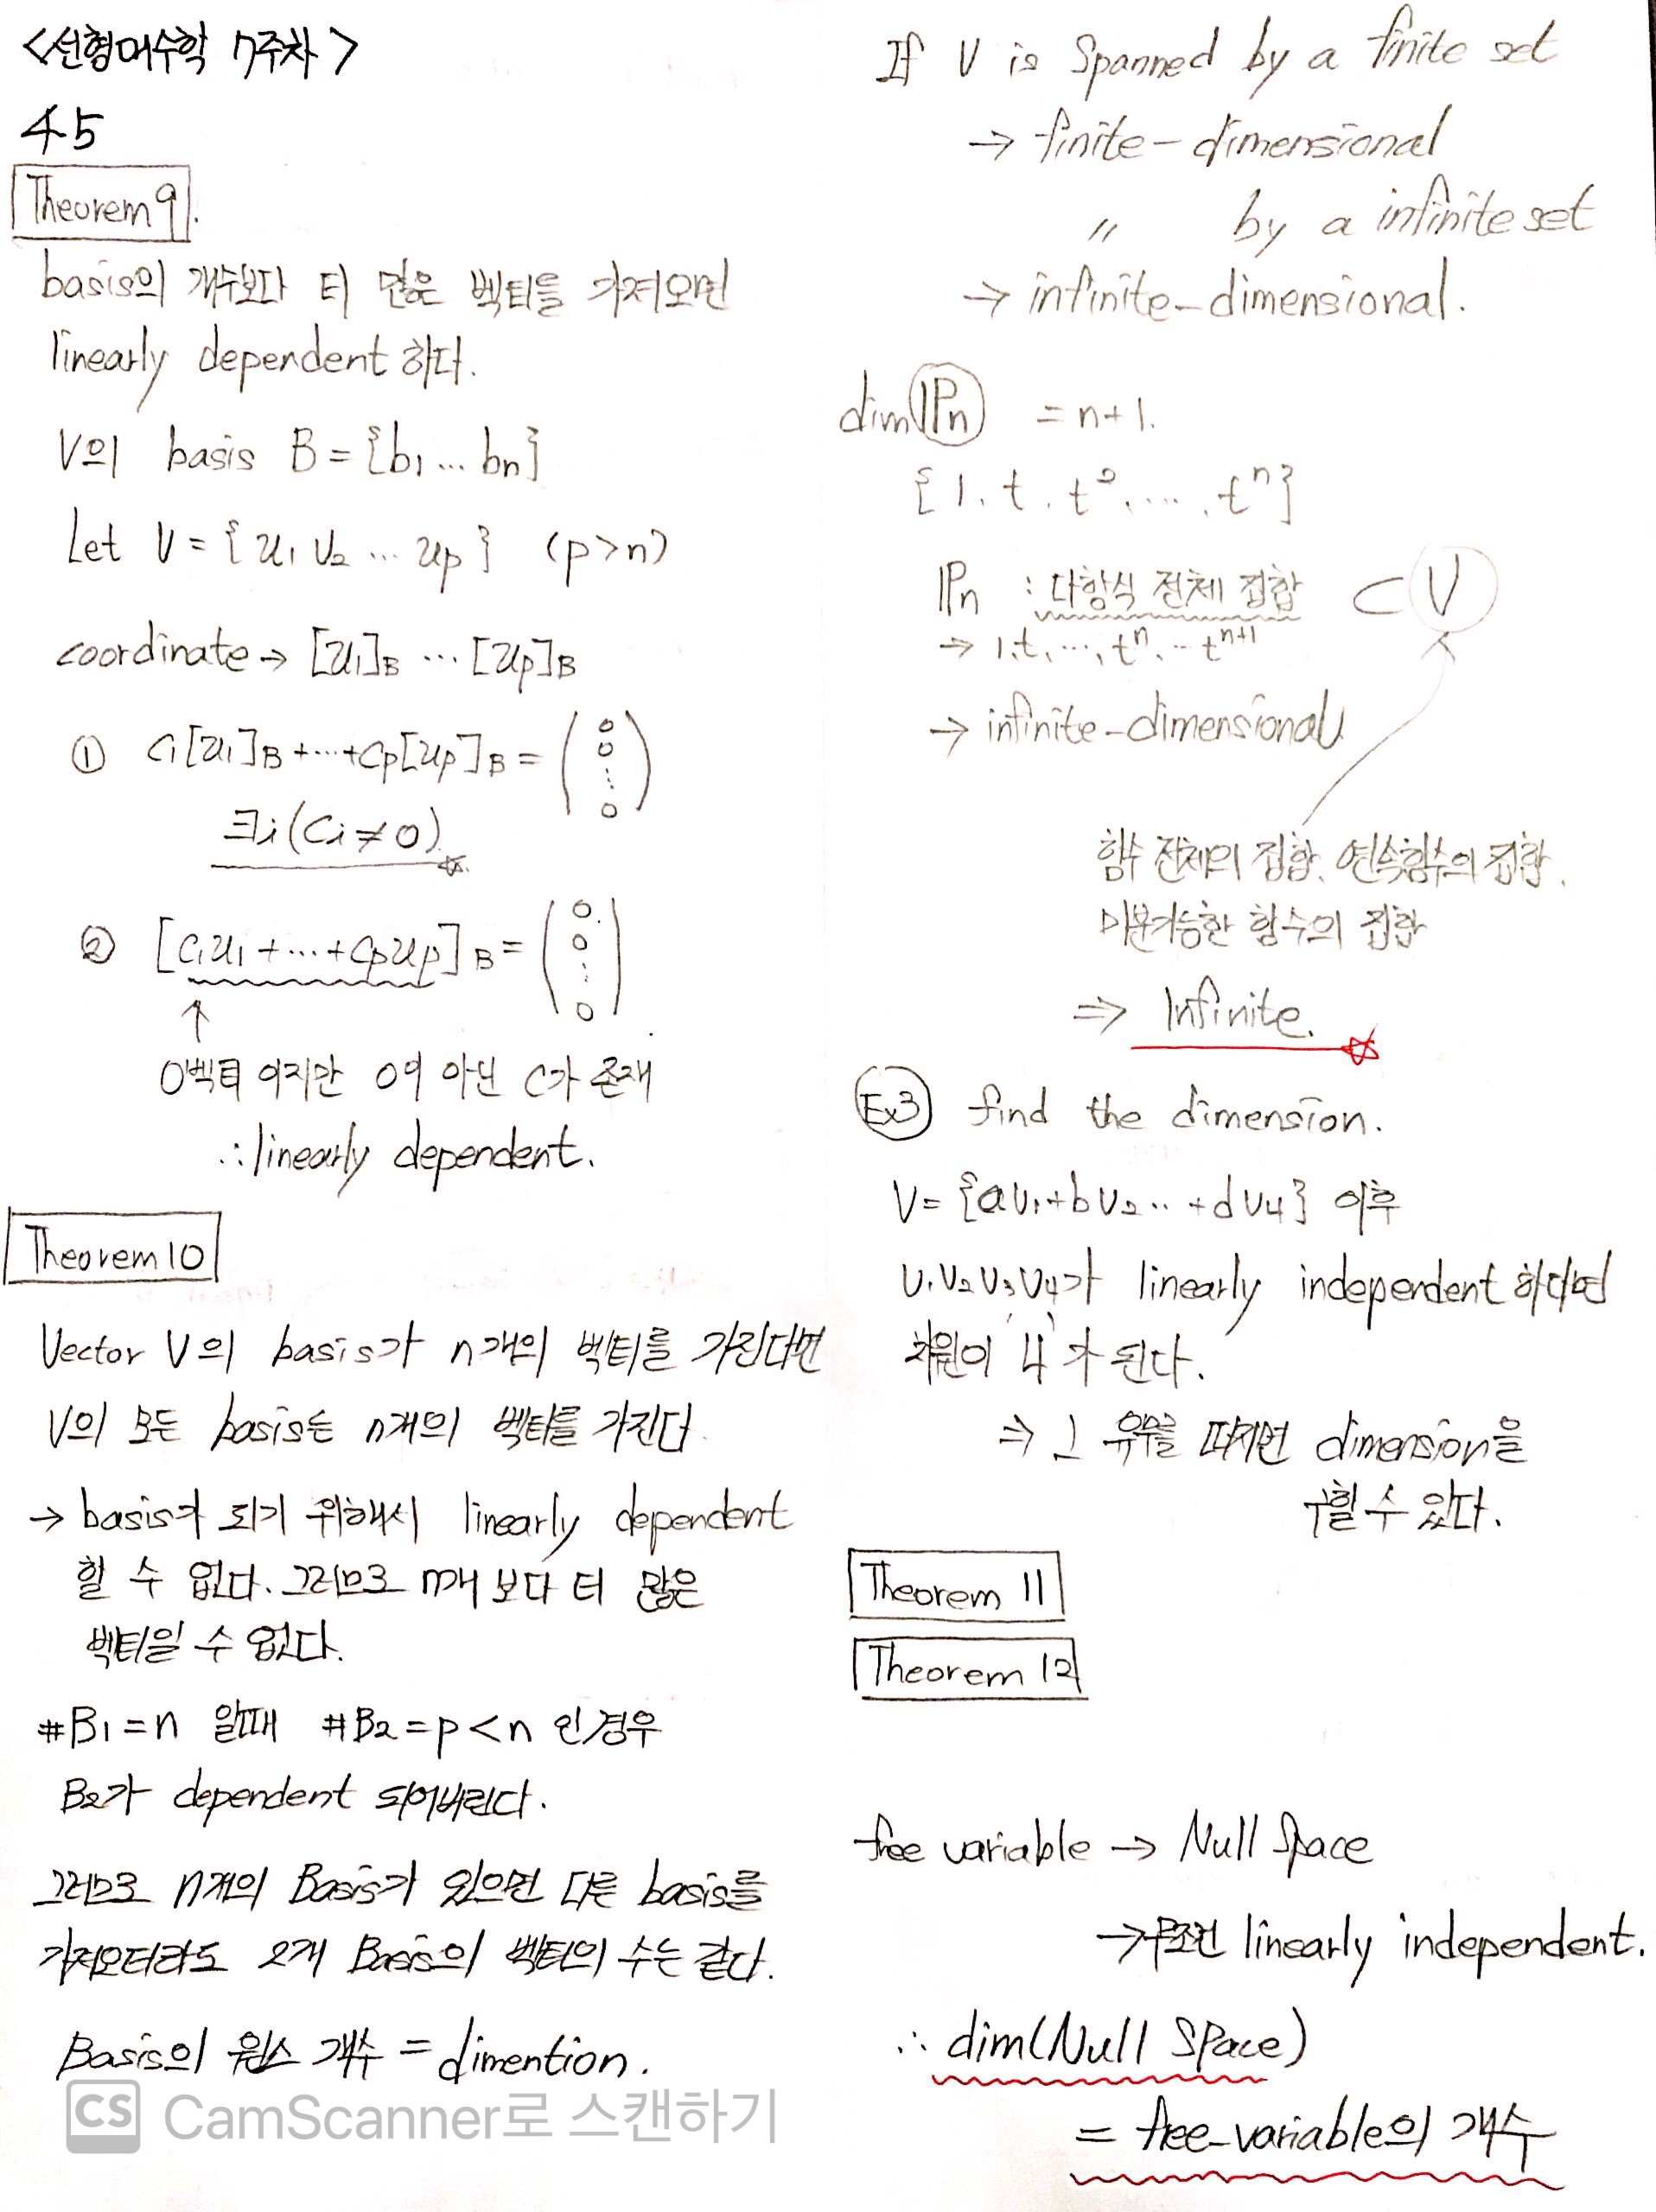 <선형대수학 7주차>
4.5
Theorem 9.
basis의 개수보다 더 많은 벡터를 가져오면
linearly dependent 하다.
V의 basis B = {b1 ... bn}
Let V = {u1 u2 ... up} (p>n)
coordinate → [u1]B ... [up]B
① C1[u1]B + ... + Cp[up]B = (0 0 ⋮ 0)
∃i (Ci ≠ 0)
② [C1u1 + ... + Cpup]B = (0 0 ⋮ 0)
↑
0벡터 이지만 0이 아닌 C가 존재
∴ linearly dependent.
Theorem 10
Vector V의 basis가 n개의 벡터를 가진다면
V의 모든 basis는 n개의 벡터를 가진다.
→ basis가 되기 위해서 linearly dependent
할 수 없다. 그러므로 n개 보다 더 많은
벡터일 수 없다.
#B1 = n 일때 #B2 = p < n 인경우
B2가 dependent 되어버린다.
그러므로 n개의 Basis가 있으면 다른 basis를
가져오더라도 2개 Basis의 벡터의 수는 같다.
Basis의 원소 개수 = dimention.
CS CamScanner로 스캔하기
If V is Spanned by a finite set
→ finite-dimensional
〃 by a infinite set
→ infinite-dimensional.
dim Pn = n+1.
{1, t, t², ..., tⁿ}
ℙn : 다항식 전체 집합 ⊂ V
→ 1, t, ..., tⁿ, ... tⁿ⁺¹
→ infinite-dimensional
함수 전체의 집합, 연속함수의 집합,
미분가능한 함수의 집합
⇒ Infinite.
Ex3 find the dimension.
V = {aV1 + bV2 .. + dV4} 이후
V1 V2 V3 V4가 linearly independent 하다면
차원이 '4'가 된다.
⇒ 그 유무를 따지면 dimension을
구할 수 있다.
Theorem 11
Theorem 12
free variable → Null Space
→ 무조건 linearly independent.
∴ dim(Null Space)
= free-variable의 개수